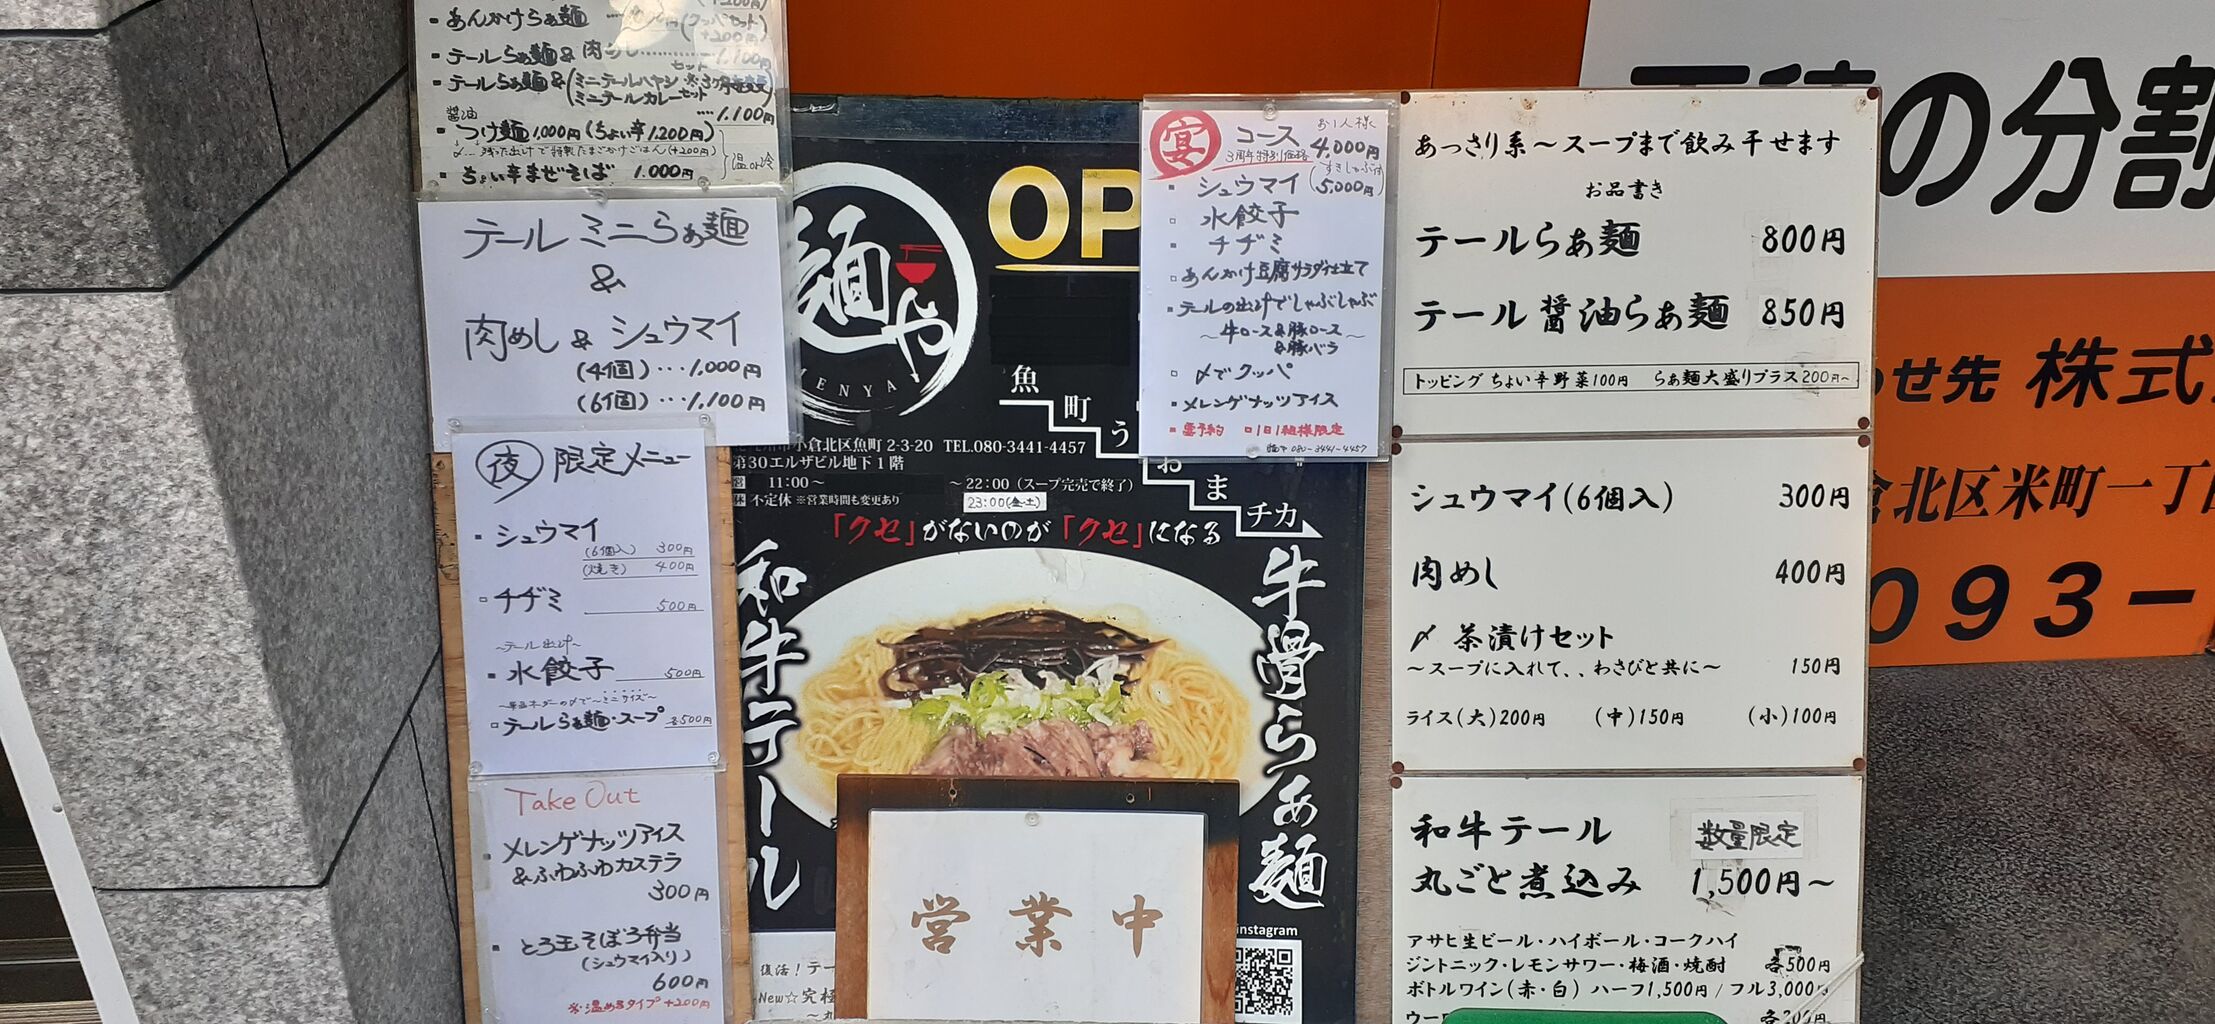 あんかけらぁ麺
(クッパセット
+200円)
テールらぁ麺&肉めし
セット 1,100円
テールらぁ麺&(ミニテールハヤシ
ミニテールカレーセット
1,100円
醤油
つけ麺1,000円(ちょい辛1,200円)
〆…残った出汁で特製たまごかけごはん(+200円)
温or冷
ちょい辛まぜそば 1,000円
テールミニらぁ麺
&
肉めし & シュウマイ
(4個)…1,000円
(6個)…1,100円
夜 限定メニュー
シュウマイ
(6個入) 300円
(焼き) 400円
チヂミ 500円
~テール出汁~
水餃子 500円
テールらぁ麺・スープ 各500円
Take Out
メレンゲナッツアイス
&ふわふわカステラ
300円
とろ玉そぼろ弁当
(シュウマイ入り)
600円
※温めるタイプ+200円
麺や
MENYA
OP
魚町うおまチカ
小倉北区魚町2-3-20 TEL.080-3441-4457
第30エルザビル地下1階
11:00~ ~22:00(スープ完売で終了)
23:00(金・土)
不定休 ※営業時間も変更あり
「クセ」がないのが「クセ」になる
和牛テール
牛骨らぁ麺
営業中
復活!テー
New☆究極
instagram
宴 コース お1人様
4,000円
3周年特別価格
(すきしゃぶ付
5,000円)
シュウマイ
水餃子
チヂミ
あんかけ豆腐サラダ仕立て
テールの出汁でしゃぶしゃぶ
~牛ロース&豚ロース~
&豚バラ
〆でクッパ
メレンゲナッツアイス
要予約 1日1組様限定
080-3441-4457
あっさり系~スープまで飲み干せます
お品書き
テールらぁ麺 800円
テール醤油らぁ麺 850円
トッピング ちょい辛野菜100円 らぁ麺大盛りプラス200円~
シュウマイ(6個入) 300円
肉めし 400円
〆 茶漬けセット
~スープに入れて、、わさびと共に~ 150円
ライス(大)200円 (中)150円 (小)100円
和牛テール 数量限定
丸ごと煮込み 1,500円~
アサヒ生ビール・ハイボール・コークハイ
ジントニック・レモンサワー・梅酒・焼酎 各500円
ボトルワイン(赤・白) ハーフ1,500円/フル3,000円
ウーロ 各200円
の分割
わせ先 株式
倉北区米町一丁
093-